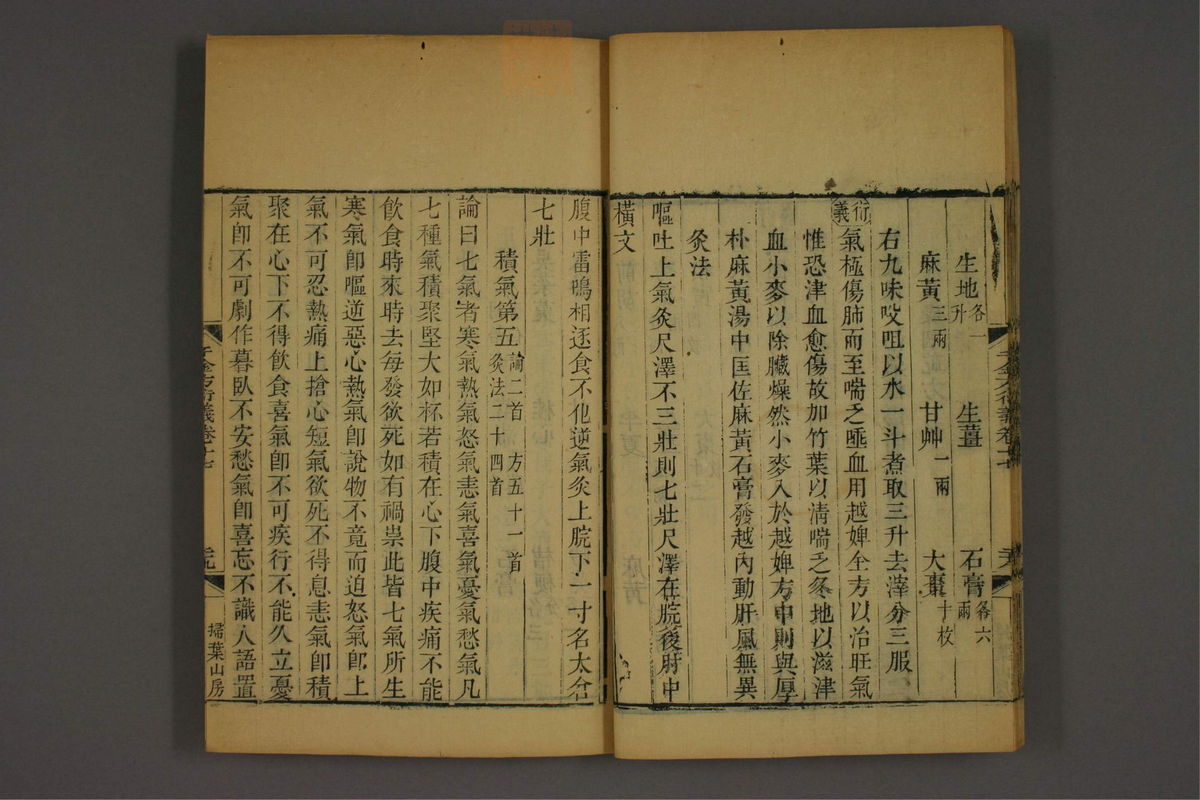 生地各一升　生薑　石膏各六兩
麻黃三兩　甘艸一兩　大棗十枚
右九味㕮咀以水一斗煮取三升去滓分三服
衍義氣極傷肺而至喘乏唾血用越婢全方以治旺氣
惟恐津血愈傷故加竹葉以淸喘乏冬地以滋津
血小麥以除臟燥然小麥入於越婢方中則與厚
朴麻黃湯中匡佐麻黃石膏發越內動肝風無異
灸法
嘔吐上氣灸尺澤不三壯則七壯尺澤在腕後肘中
橫文
千金方衍義卷十七
腹中雷鳴相逐食不化逆氣灸上脘下一寸名太倉
七壯
積氣第五論二首　方五十一首　灸法二十四首
論曰七氣者寒氣熱氣怒氣恚氣喜氣憂氣愁氣凡
七種氣積聚堅大如杯若積在心下腹中疾痛不能
飲食時來時去每發欲死如有禍祟此皆七氣所生
寒氣卽嘔逆惡心熱氣卽說物不竟而迫怒氣卽上
氣不可忍熱痛上搶心短氣欲死不得息恚氣卽積
聚在心下不得飲食喜氣卽不可疾行不能久立憂
氣卽不可劇作暮臥不安愁氣卽喜忘不識人語置
千金方衍義卷十七
掃葉山房